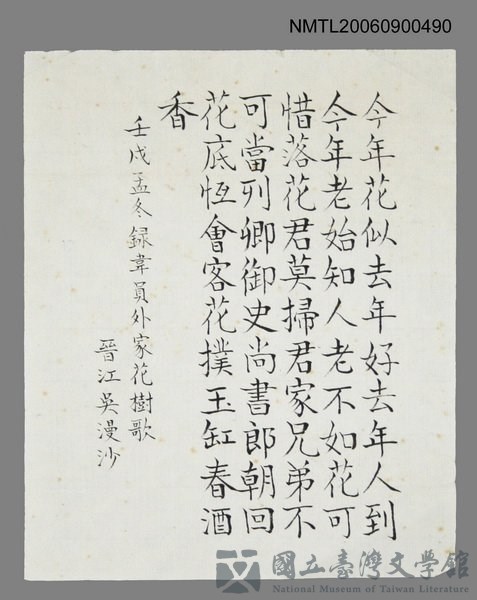 NMTL20060900490
今年花似去年好去年人到
今年老始知人老不如花可
惜落花君莫掃君家兄弟不
可當列卿御史尚書郎朝回
花底恆會客花撲玉缸春酒
香
壬戌孟冬録韋員外家花樹歌
晉江吳漫沙
國立臺灣文學館
National Museum of Taiwan Literature